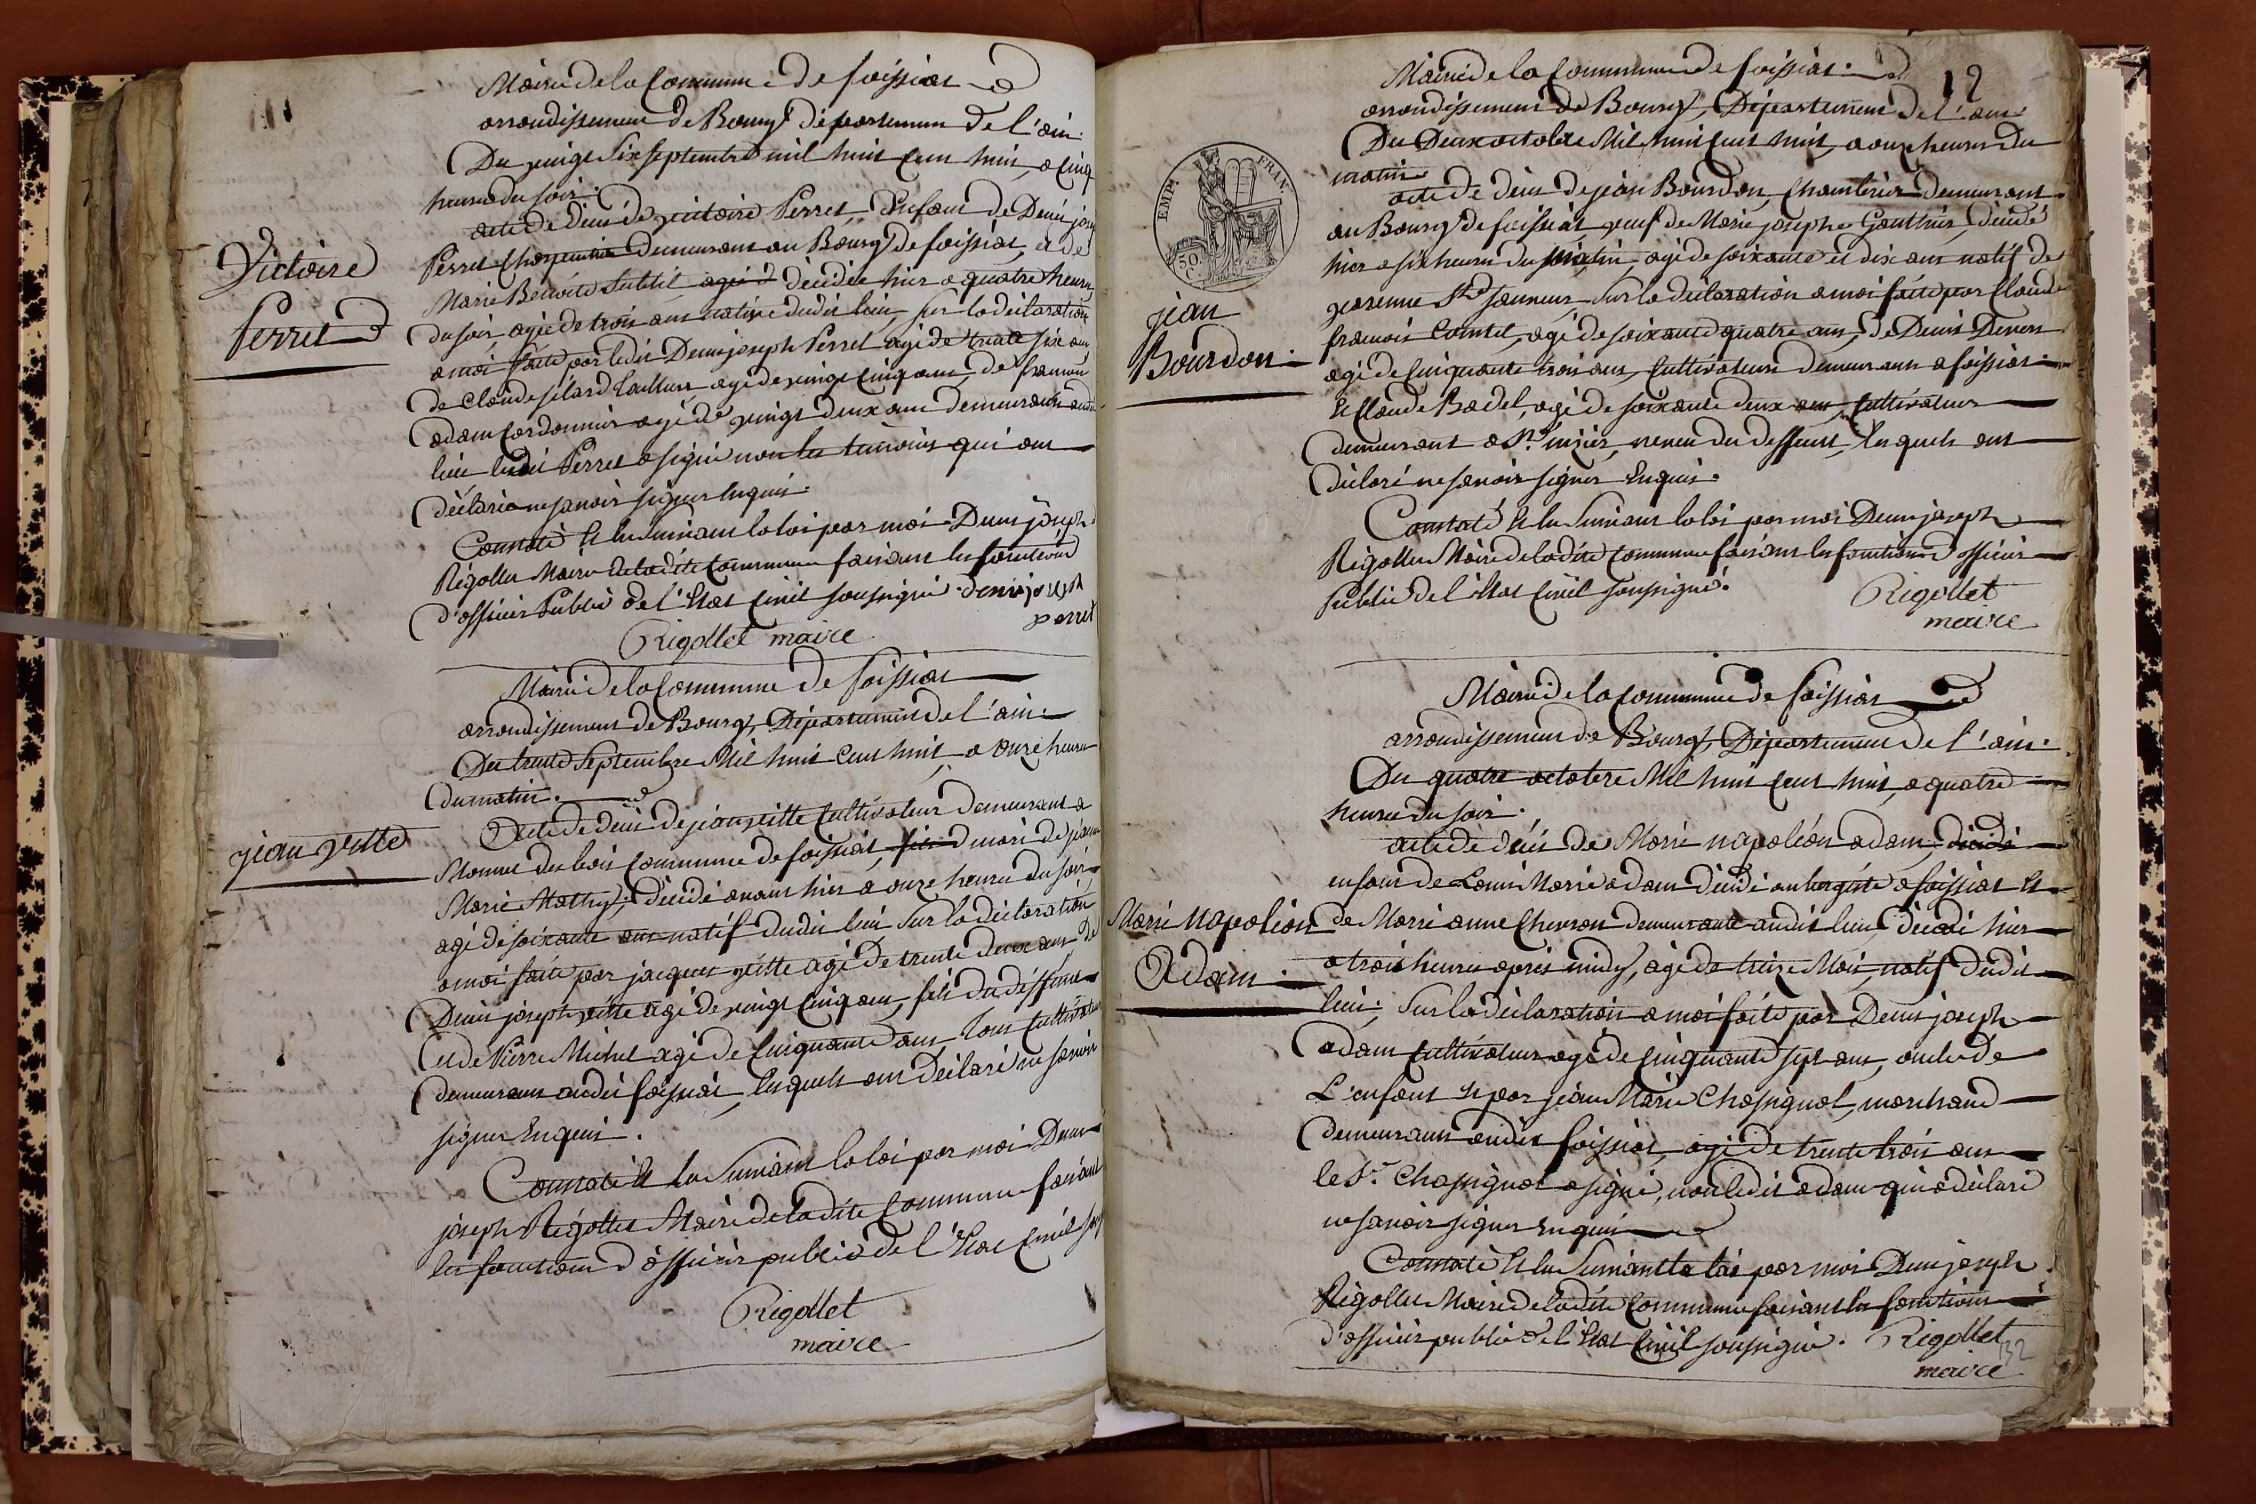 Mairie de la Commune de foissiat
arrondissement de Bourg département de l'ain.
Du vingt six septembre mil huit cent huit, a cinq
heures du soir.
acte de décès de victoire Perret, enfant de Denis joseph
Perret Charpentier demeurant au Bourg de foissiat, et de
Marie Benoite Subtil agé d décédée hier a quatre heures
du soir, agée de trois ans native dudit lieu, sur la déclaration
a moi faite par ledit Denis joseph Perret agé de trente six ans
de Claude tailleur agé de vingt cinq ans, de francois
adam cordonnier agé de vingt deux ans demeurants audit
lieu ledit Perret a signé non les temoins qui ont
déclaré ne savoir signer Enquis.
Constaté Et lu Suivant la loi par moi Denis joseph
Rigollet Maire de ladite Commune faisant les fonctions
d'officier Public de l'Etat Civil soussigné. denis joseph
perret
Rigollet maire
Victoire
Perret
Mairie de la Commune de foissiat
arrondissement de Bourg, Département de l'ain.
Du trente Septembre Mil huit Cent huit, a onze heures
du matin.
Acte de décès de jean vitte Cultivateur demeurant a
du bois Commune de foissiat, mari de jeanne
Marie Mathy, décédé avant hier a onze heures du soir
agé de soixante ans natif dudit lieu sur la déclaration
a moi faite par jacques vitte agé de trente deux ans, de
Denis joseph vitte agé de vingt cinq ans, fils du deffunt
et de Pierre Michel agé de Cinquante ans tous Cultivateurs
demeurans audit foissiat, lesquels ont déclaré ne savoir
signer Enquis.
Constaté Et lu Suivant la loi par moi Denis
joseph Rigollet Maire de ladite Commune faisant
les fonctions d'officier public de l'Etat Civil
Rigollet
maire
jean vitte
12
Mairie de la Commune de foissiat.
arrondissement de Bourg, Département de l'ain
Du Deux octobre Mil huit Cent huit, a onze heures du
matin
acte de décès de jean Bourdon, demeurant
au Bourg de foissiat veuf de Marie josephe Gauthier, décédé
hier a six heures du matin, agé de soixante et dix ans natif de
sur la déclaration a moi faite par Claude
francois Comtet, agé de soixante quatre ans, de Denis
agé de Cinquante trois ans, Cultivateurs demeurans a foissiat
Et Claude Badel, agé de soixante deux ans Cultivateur
demeurant a neveu du deffunt, lesquels ont
déclaré ne savoir signer Enquis.
Constaté Et lu Suivant la loi par moi Denis joseph
Rigollet Maire de ladite Commune faisant les fonctions d'officier
Public de l'Etat Civil soussigné.
Rigollet
maire
EMP. FRAN.
50 C.
jean
Bourdon.
Mairie de la Commune de foissiat
arrondissement de Bourg, Département de l'ain.
Du quatre octobre Mil huit Cent huit, a quatre
heures du soir.
acte de décès de Marie napoléon adam, décédé
enfant de Louis Marie adam décédé aubergiste a foissiat Et
de Marie anne Chevron demeurante audit lieu, décédé hier
a trois heures après midy, agé de treize Mois, natif dudit
lieu; sur la déclaration a moi faite par Denis joseph
adam Cultivateur agé de Cinquante sept ans, oncle de
L'enfant Et par jean Marie Chassignol, marchand
demeurants audit foissiat agé de trente trois ans
le Sr. Chassignol a signé, non ledit adam qui a déclaré
ne savoir signer Enquis
Constaté Et lu Suivant la loi par moi Denis joseph
Rigollet Maire de ladite Commune faisant les fonctions
d'officier public de l'Etat Civil soussigné. Rigollet
maire
132
Marie napoléon
Adam.